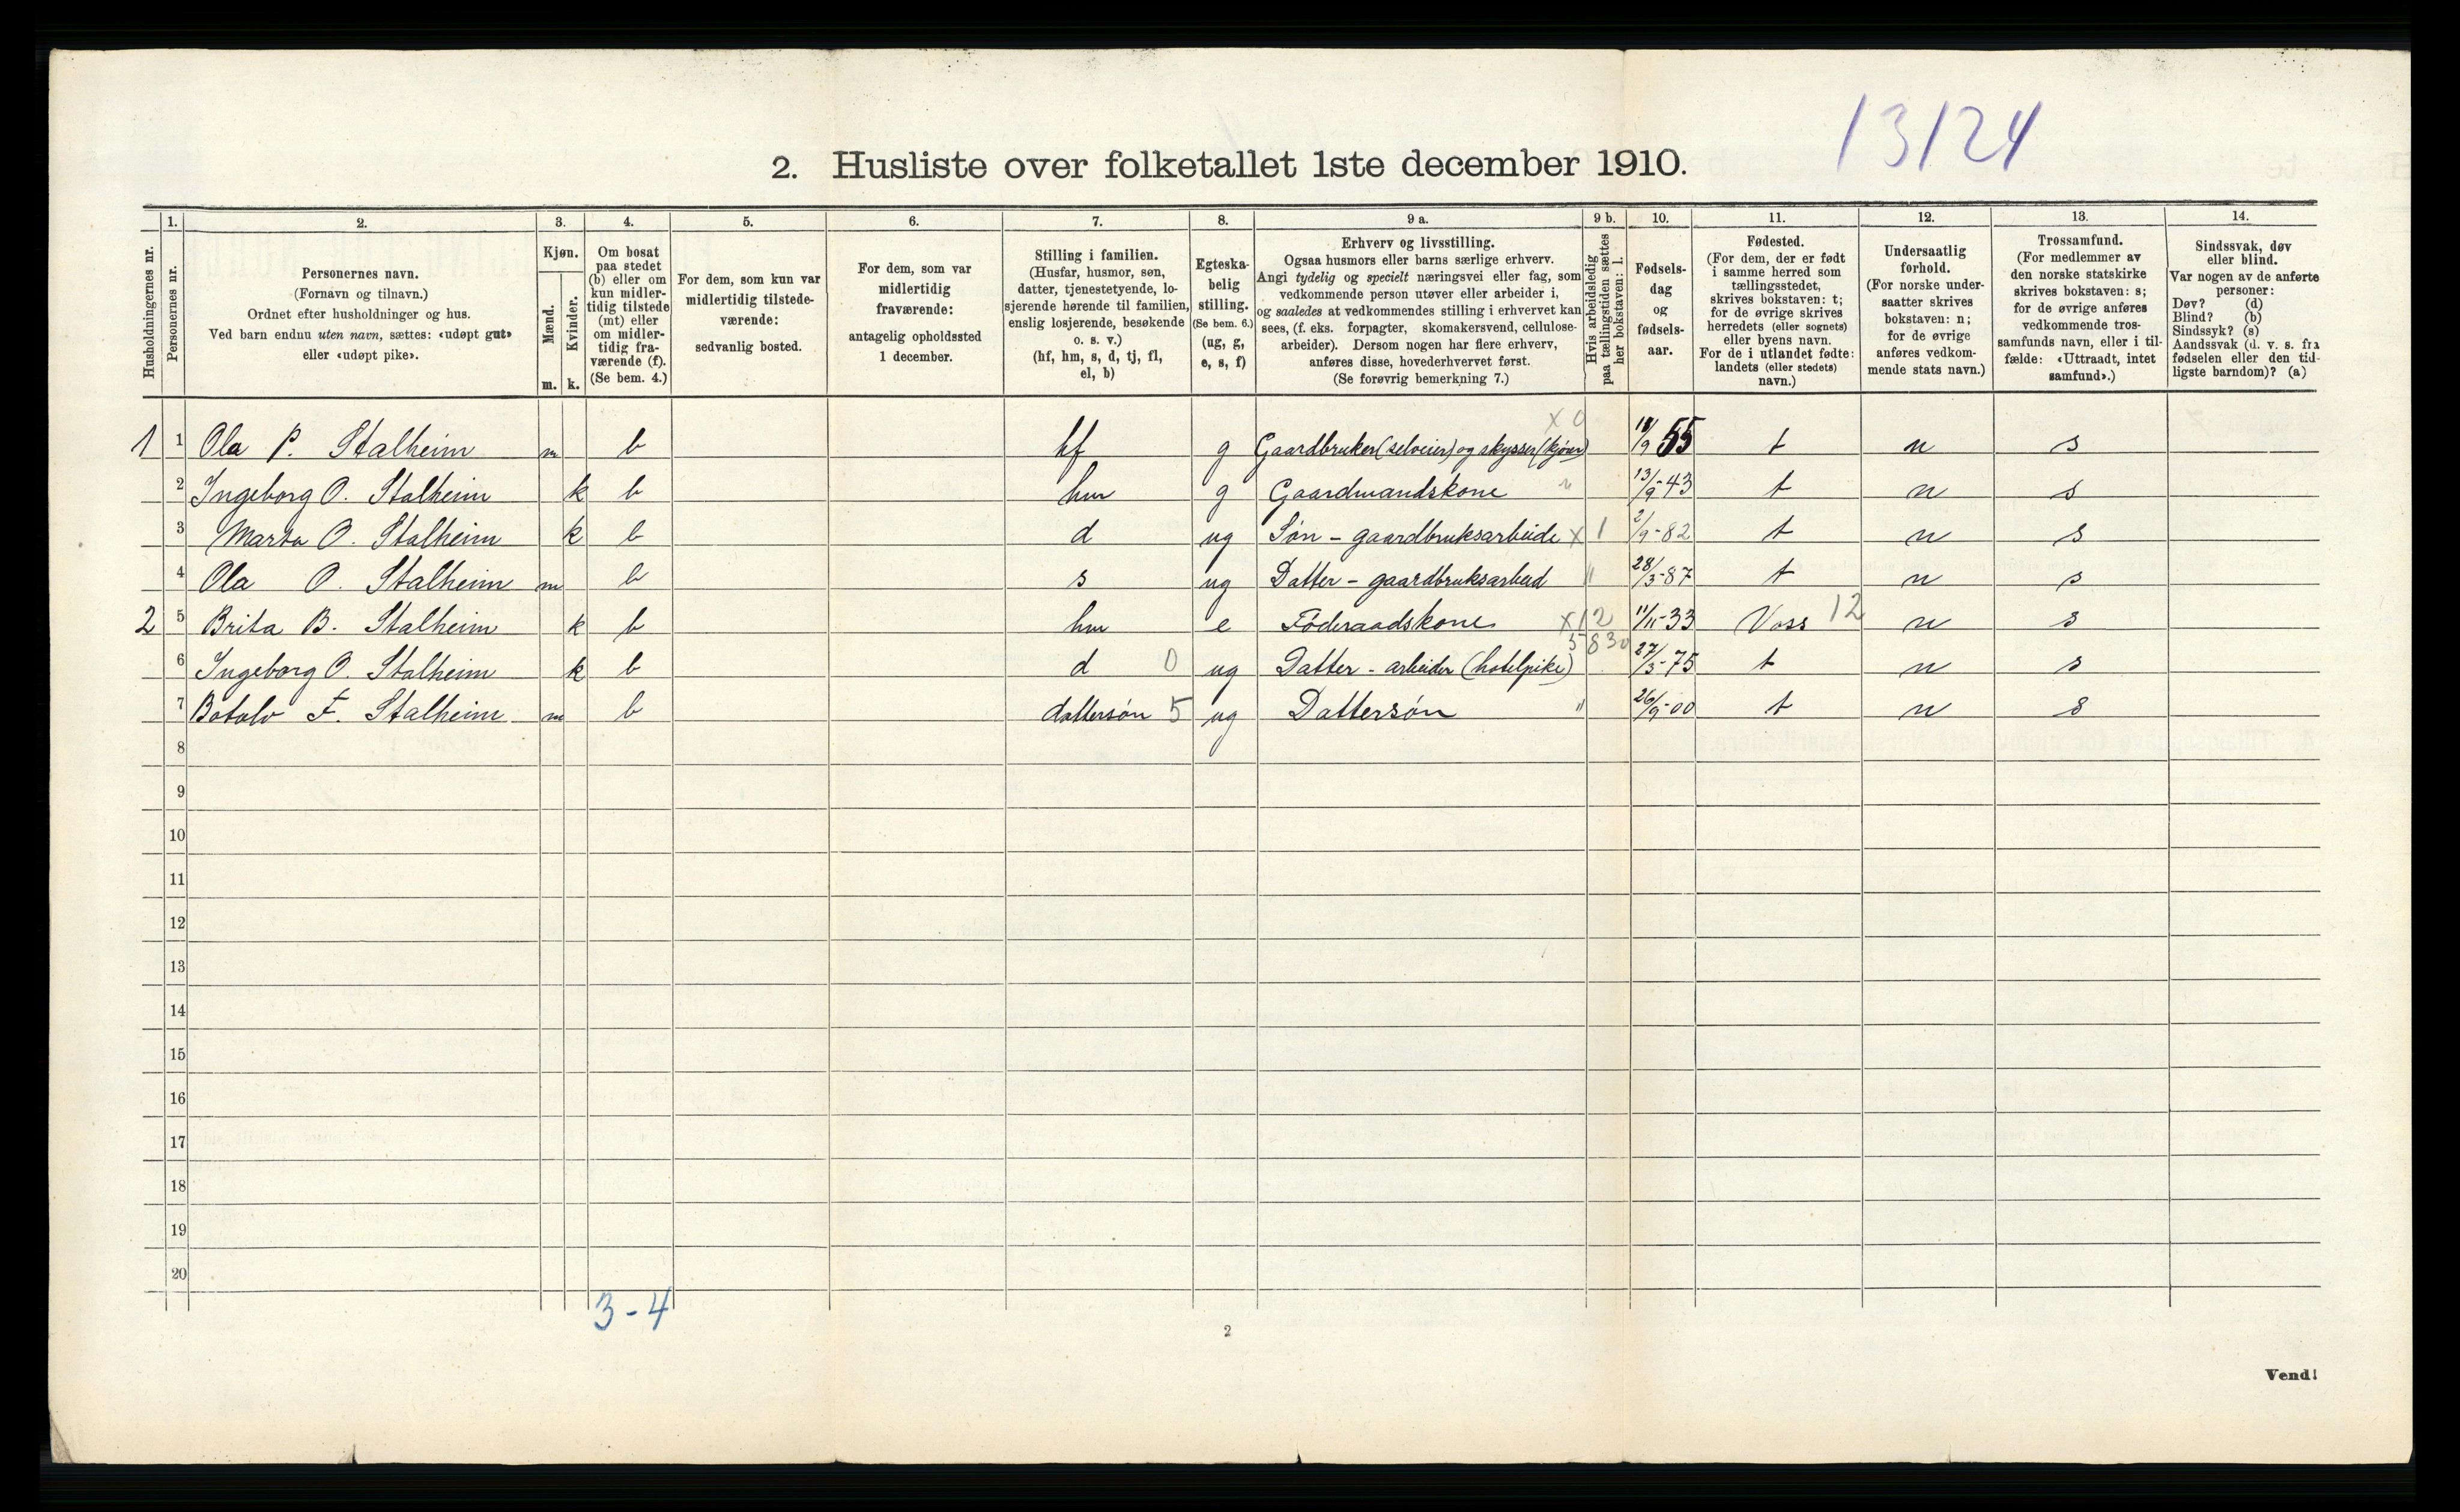 13124
2. Husliste over folketallet 1ste december 1910.
Husholdningernes nr.
1.
Personernes nr.
2.
Personernes navn.
(Fornavn og tilnavn.)
Ordnet efter husholdninger og hus.
Ved barn endnu uten navn, sættes: «udøpt gut»
eller «udøpt pike».
3.
Kjøn.
Mænd.
Kvinder.
m. k.
4.
Om bosat
paa stedet
(b) eller om
kun midler-
tidig tilstede
(mt) eller
om midler-
tidig fra-
værende (f).
(Se bem. 4.)
5.
For dem, som kun var
midlertidig tilstede-
værende:
sedvanlig bosted.
6.
For dem, som var
midlertidig
fraværende:
antagelig opholdssted
1 december.
7.
Stilling i familien.
(Husfar, husmor, søn,
datter, tjenestetyende, lo-
sjerende hørende til familien,
enslig losjerende, besøkende
o. s. v.)
(hf, hm, s, d, tj, fl,
el, b)
8.
Egteska-
belig
stilling.
(Se bem. 6.)
(ug, g,
e, s, f)
9 a.
Erhverv og livsstilling.
Ogsaa husmors eller barns særlige erhverv.
Angi tydelig og specielt næringsvei eller fag, som
vedkommende person utøver eller arbeider i,
og saaledes at vedkommendes stilling i erhvervet kan
sees, (f. eks. forpagter, skomakersvend, cellulose-
arbeider). Dersom nogen har flere erhverv,
anføres disse, hovederhvervet først.
(Se forøvrig bemerkning 7.)
9 b.
Hvis arbeidsledig
paa tællingstiden sættes
her bokstaven: l.
10.
Fødsels-
dag
og
fødsels-
aar.
11.
Fødested.
(For dem, der er født
i samme herred som
tællingsstedet,
skrives bokstaven: t;
for de øvrige skrives
herredets (eller sognets)
eller byens navn.
For de i utlandet fødte:
landets (eller stedets)
navn.)
12.
Undersaatlig
forhold.
(For norske under-
saatter skrives
bokstaven: n;
for de øvrige
anføres vedkom-
mende stats navn.)
13.
Trossamfund.
(For medlemmer av
den norske statskirke
skrives bokstaven: s;
for de øvrige anføres
vedkommende tros-
samfunds navn, eller i til-
fælde: «Uttraadt, intet
samfund».)
14.
Sindssvak, døv
eller blind.
Var nogen av de anførte
personer:
Døv? (d)
Blind? (b)
Sindssyk? (s)
Aandssvak (d. v. s. fra
fødselen eller den tid-
ligste barndom)? (a)
x 0
1 1 Ola P. Stalheim m b hf g Gaardbruker (selveier) og skysser (kjører) 18/9 55 t n s
2 Ingeborg O. Stalheim k b hm g Gaardmandskone " 13/9-43 t n s
3 Marta O. Stalheim k b d ug Søn - gaardbruksarbeide x 1 2/9-82 t n s
4 Ola O. Stalheim m b s ug Datter - gaardbruksarbeid " 28/3-87 t n s
2 5 Brita B. Stalheim k b hm e Føderaadskone x12 11/11-33 Voss 12 n s
5830
6 Ingeborg O. Stalheim k b d 0 ug Datter - arbeider (hotelpike) 27/3-75 t n s
7 Botolv F. Stalheim m b dattersøn 5 ug Dattersøn " 26/9-00 t n s
8
9
10
11
12
13
14
15
16
17
18
19
20
3-4
2
Vend!